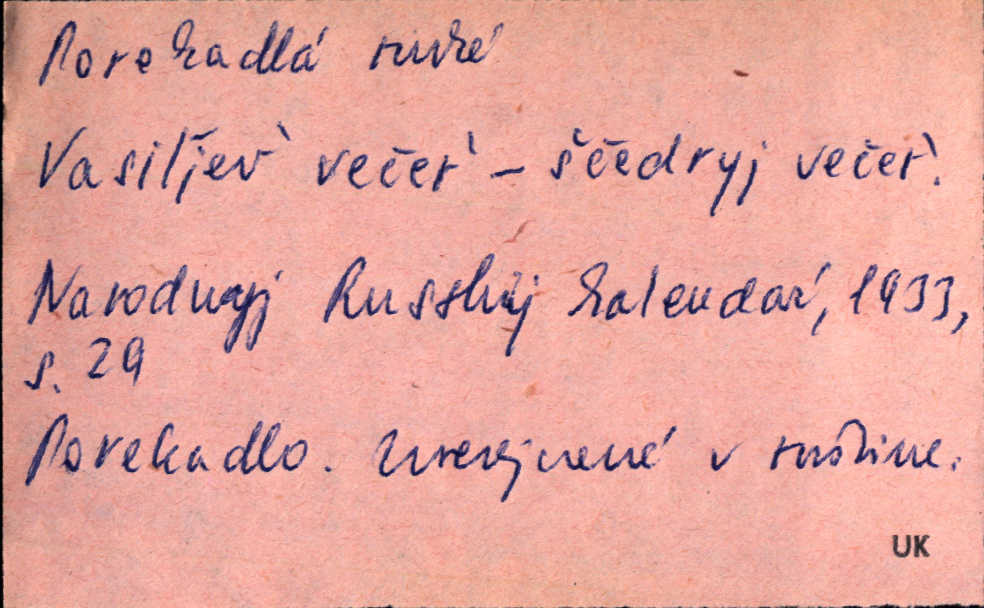 Porekadlá ruské
Vasiľjev večer – ščedryj večer.
Narodnyj Russkij kalendar, 1933,
s. 29
Porekadlo. Uverejnené v ruštine.
UK